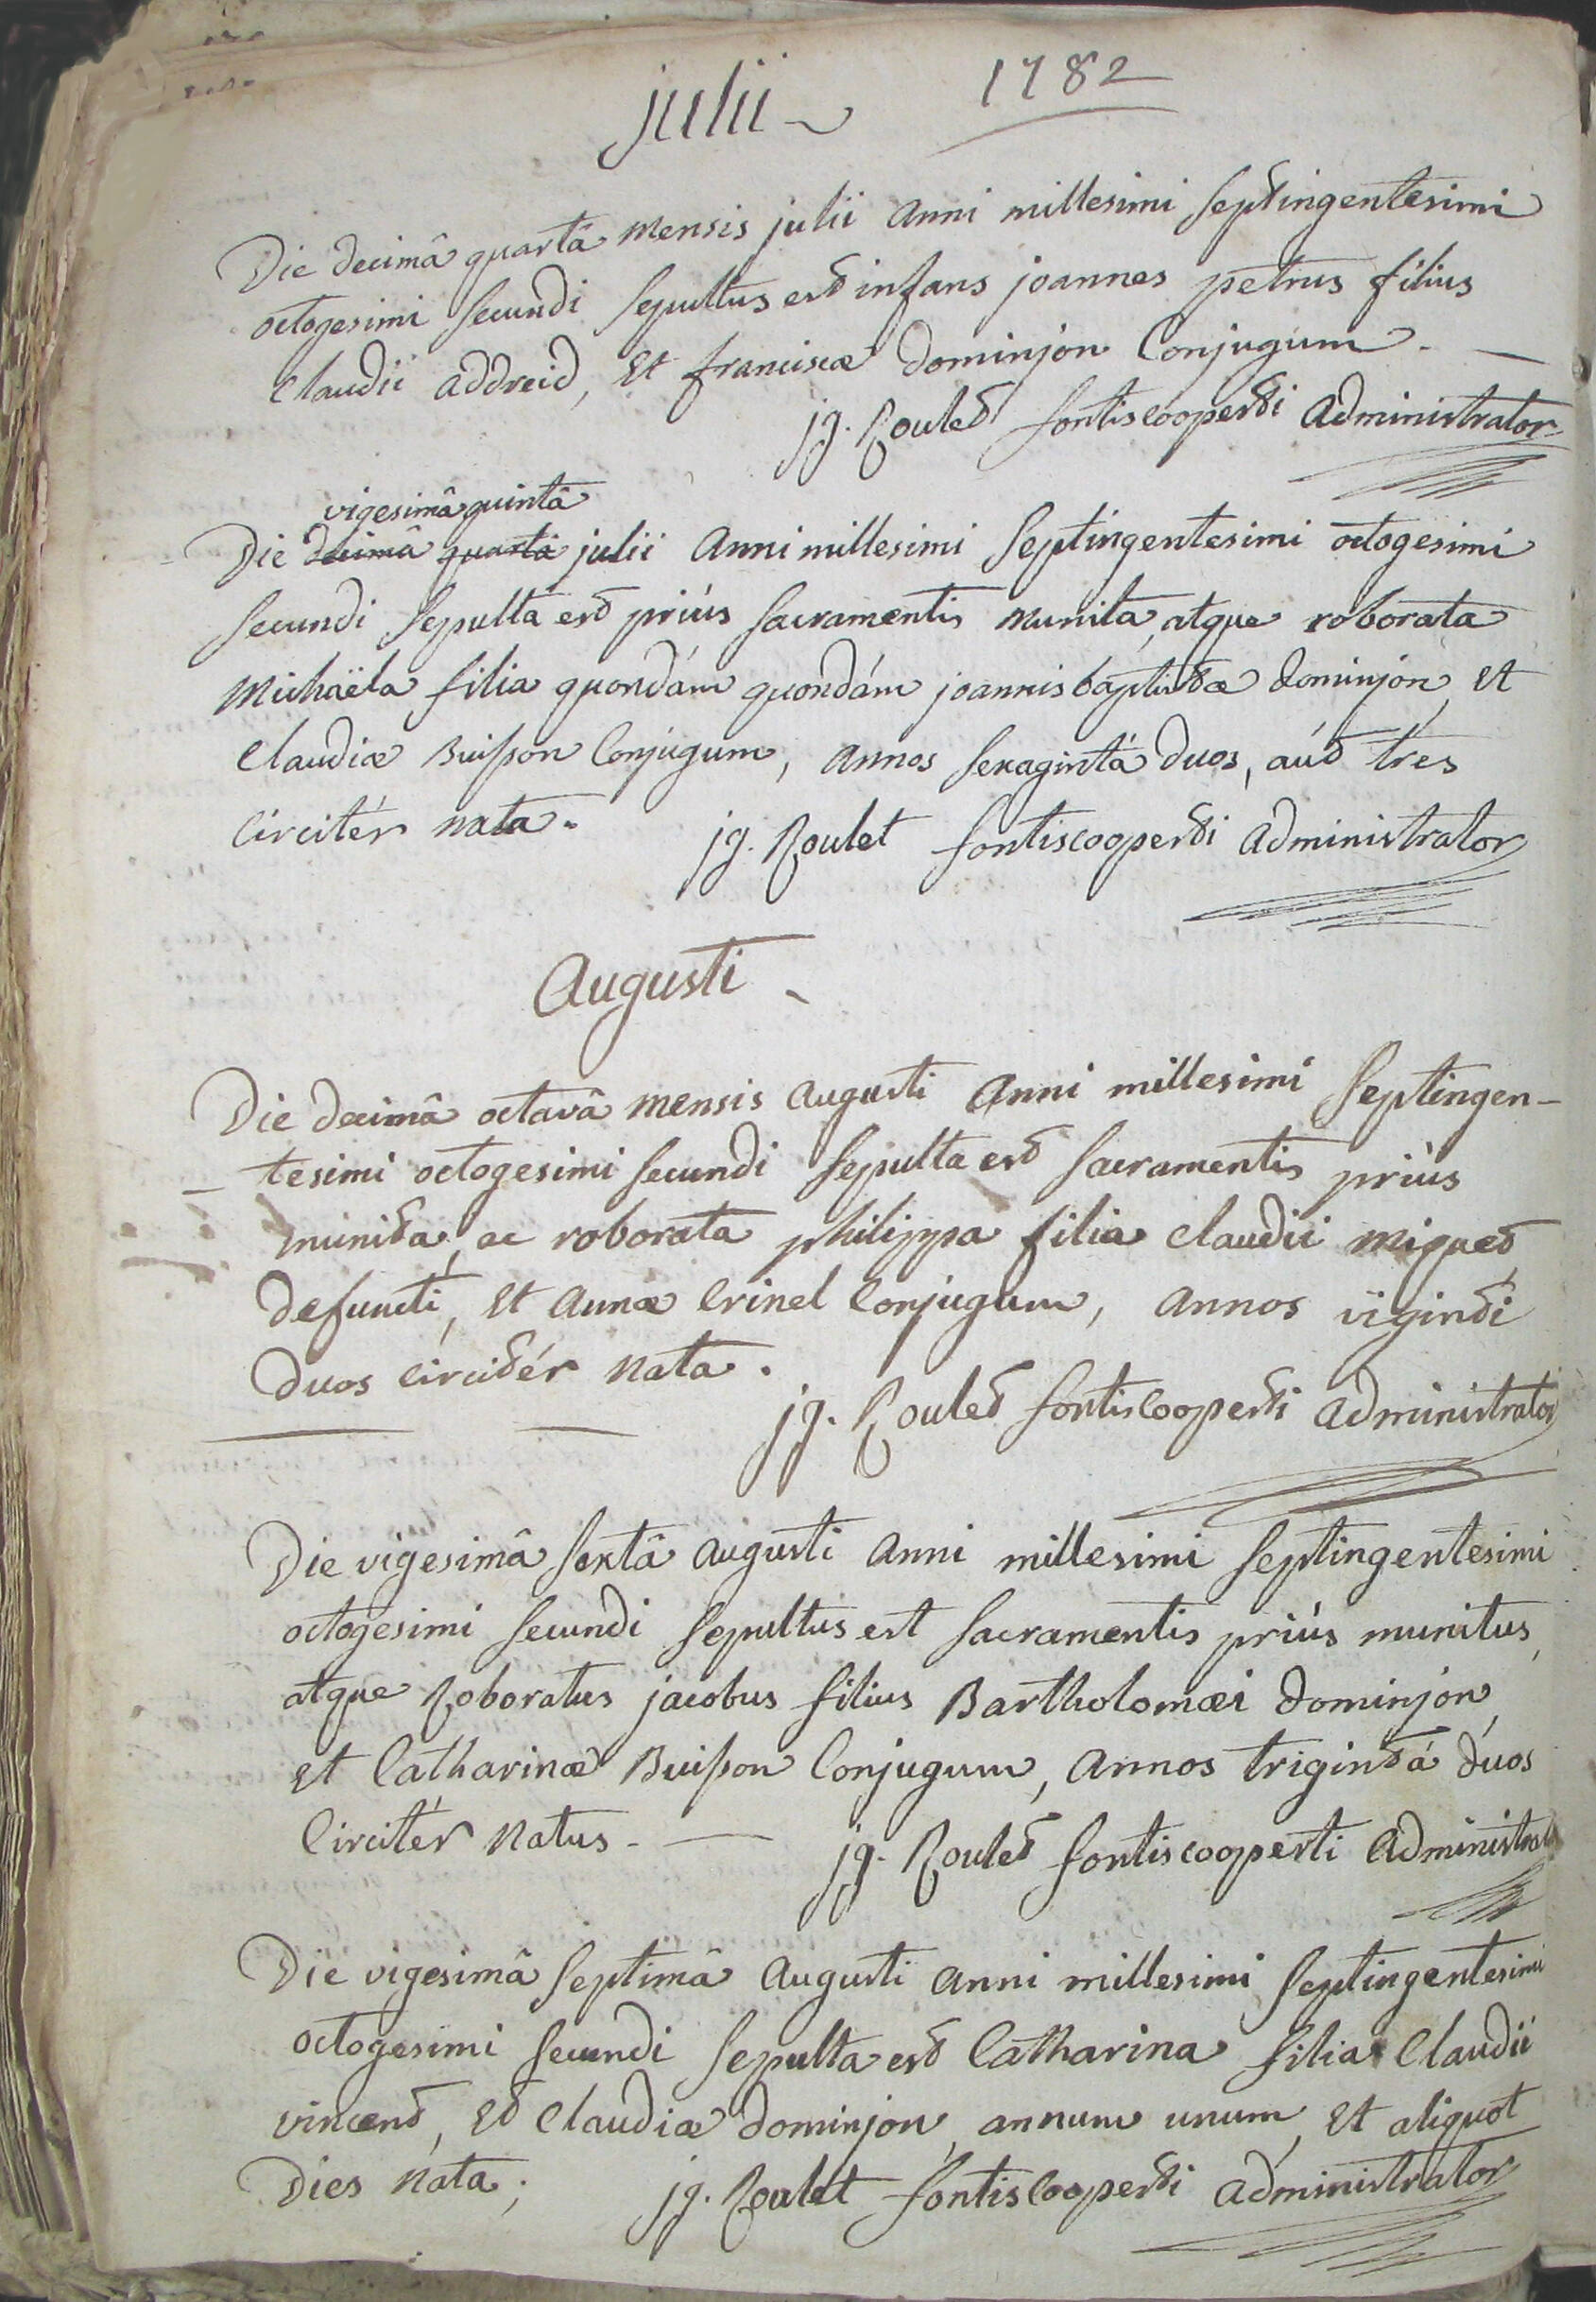 julii
1782
Die decimâ quartâ mensis julii anni millesimi septingentesimi
octogesimi secundi sepultus est infans joannes petrus filius
claudii addreid, et franciscæ dominjon conjugum.
jg. Roulet fontiscooperti administrator
vigesimâ quintâ
Die decimâ quartâ julii anni millesimi septingentesimi octogesimi
secundi sepulta est priùs sacramentis munita, atque roborata
michaëla filia quondám quondám joannis baptistæ dominjon, et
claudiæ Buisson conjugum, annos sexagintá duos, aút tres
circitér nata.
jg. Roulet fontiscooperti administrator
Augusti
Die decimâ octavâ mensis augusti anni millesimi septingen-
tesimi octogesimi secundi sepulta est sacramentis priùs
munita, ac roborata philippa filia claudii miquet
defuncti, et annæ crinel conjugum, annos viginti
duos circitér nata.
jg. Roulet fontiscooperti administrator
Die vigesimâ sextâ augusti anni millesimi septingentesimi
octogesimi secundi sepultus est sacramentis priùs munitus,
atque Roboratus jacobus filius Bartholomæi dominjon,
et Catharinæ Buisson conjugum, annos trigintá duos
circitér natus.
jg. Roulet fontiscooperti administrator
Die vigesimâ septimâ augusti anni millesimi septingentesimi
octogesimi secundi sepulta est Catharina filia claudii
vincent, et claudiæ dominjon, annum unum, et aliquot
dies nata;
jg. Roulet fontiscooperti administrator